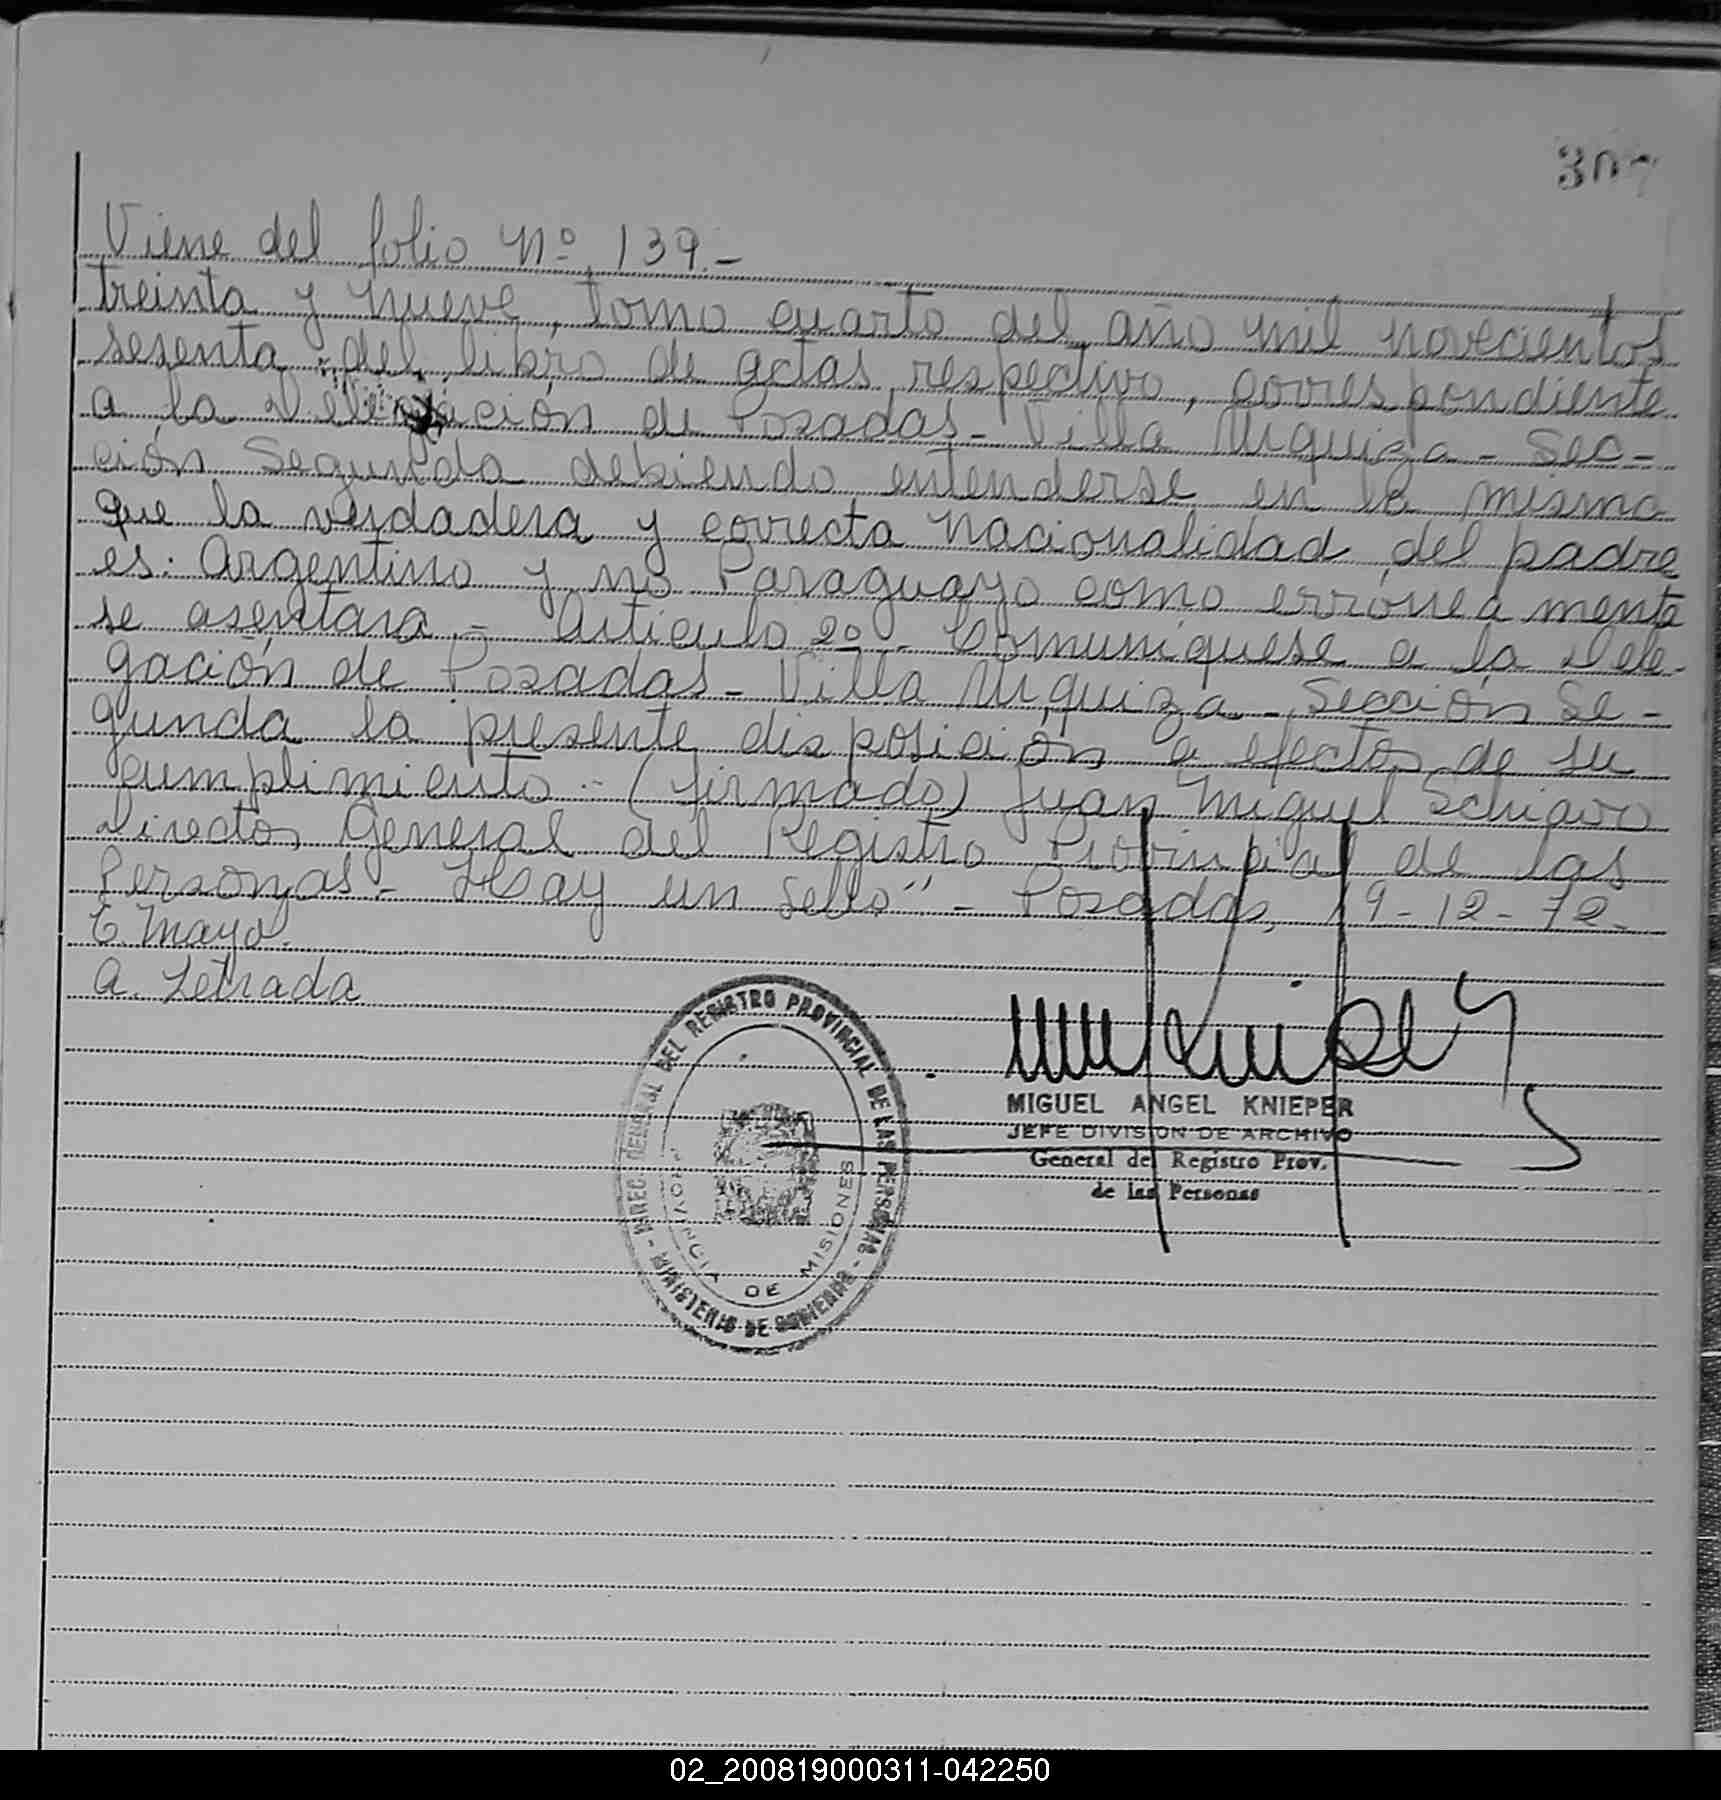 307
Viene del folio Nº 139.-
treinta y nueve, tomo cuarto del año mil novecientos
sesenta, del libro de actas respectivo, correspondiente
a la Delegación de Posadas - Villa Urquiza - Sec-
ción Segunda debiendo entenderse en la misma
que la verdadera y correcta nacionalidad del padre
es: Argentino y no Paraguayo como erróneamente
se asentara.- Artículo 2º- Comuníquese a la Dele-
gación de Posadas - Villa Urquiza - Sección Se-
gunda la presente disposición a efectos de su
cumplimiento.- (firmado) Juan Miguel Schiavo
Director General del Registro Provincial de las
Personas.- Hay un sello" - Posadas, 19-12-72.-
E. Mayo.
A. Letrada
DIREC. GENERAL DEL REGISTRO PROVINCIAL DE LAS PERSONAS
- MINISTERIO DE GOBIERNO -
PROVINCIA DE MISIONES
MIGUEL ANGEL KNIEPER
JEFE DIVISION DE ARCHIVO
General del Registro Prov.
de las Personas
02_200819000311-042250